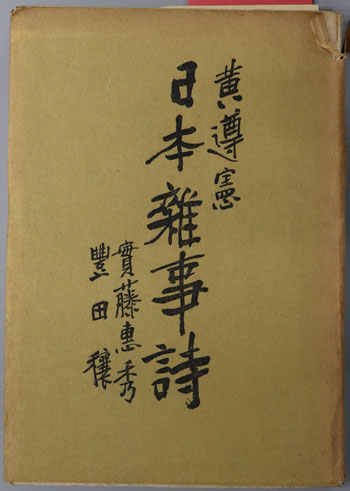 黄遵憲
日本雜事詩
實藤惠秀
豐田穰